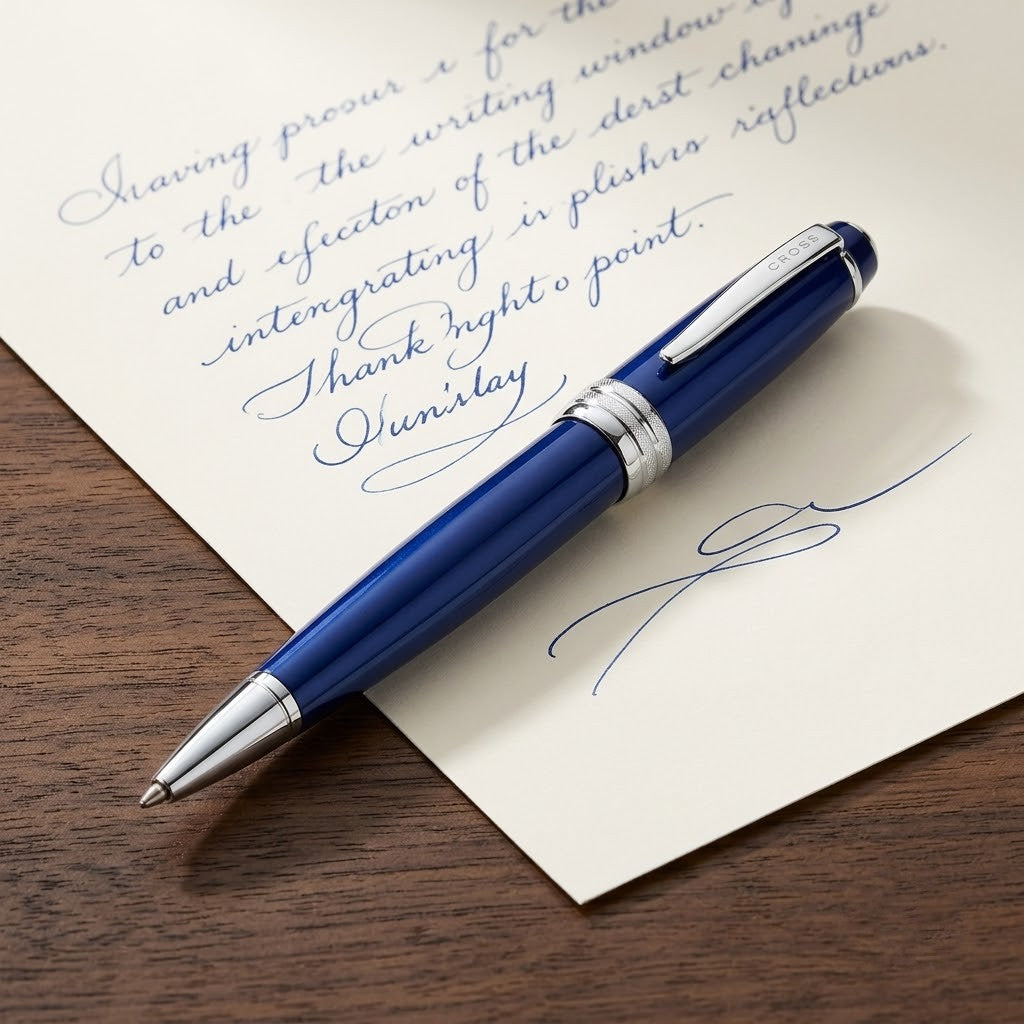 Iraving prosur r for the
to the the writing window
and efeccton of the derst chaninge
intenrgrating in plishrs rieflectuons.
Thank 'nght o point.
CROSS